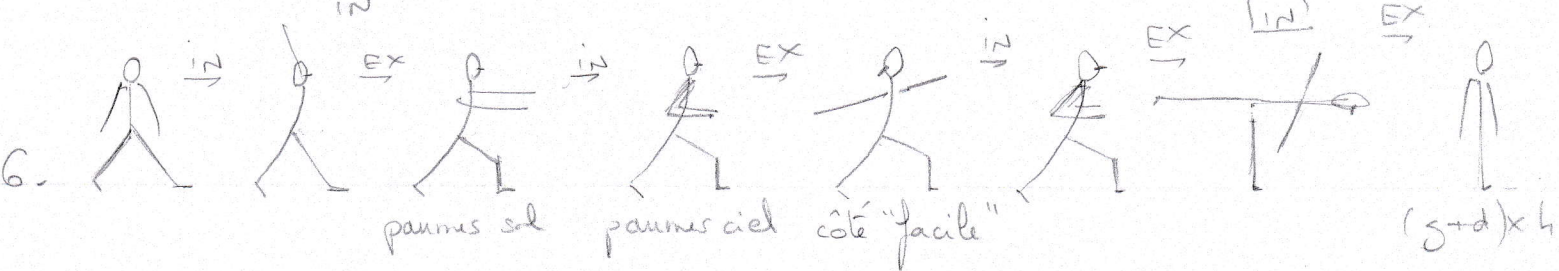 IN
IN EX IN EX IN EX [IN] EX
6.
paumes sol paumes ciel côté "facile" (g+d)x4